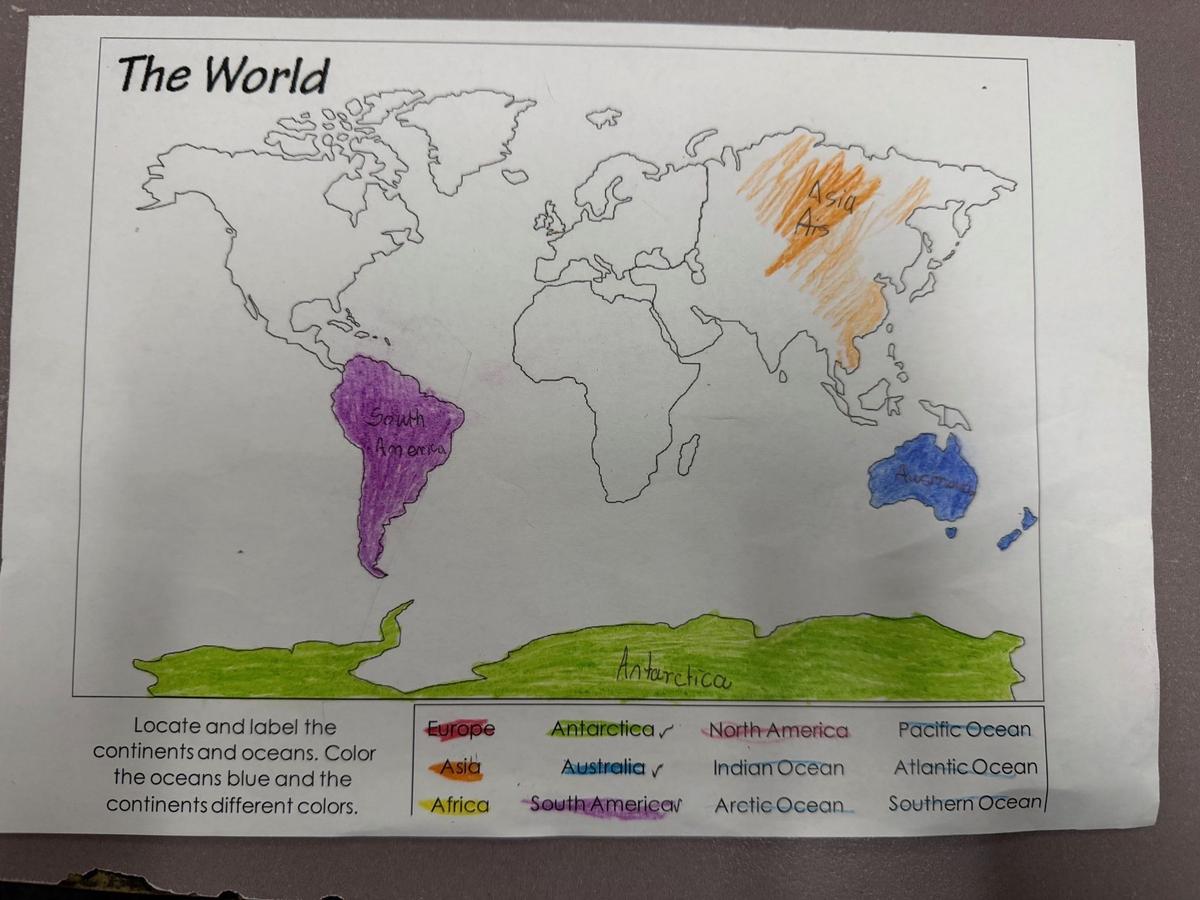 The World
Asia
Ais
South
America
Antarctica
Locate and label the
continents and oceans. Color
the oceans blue and the
continents different colors.
Europe Antarctica ✓ North America Pacific Ocean
Asia Australia ✓ Indian Ocean Atlantic Ocean
Africa South America ✓ Arctic Ocean Southern Ocean